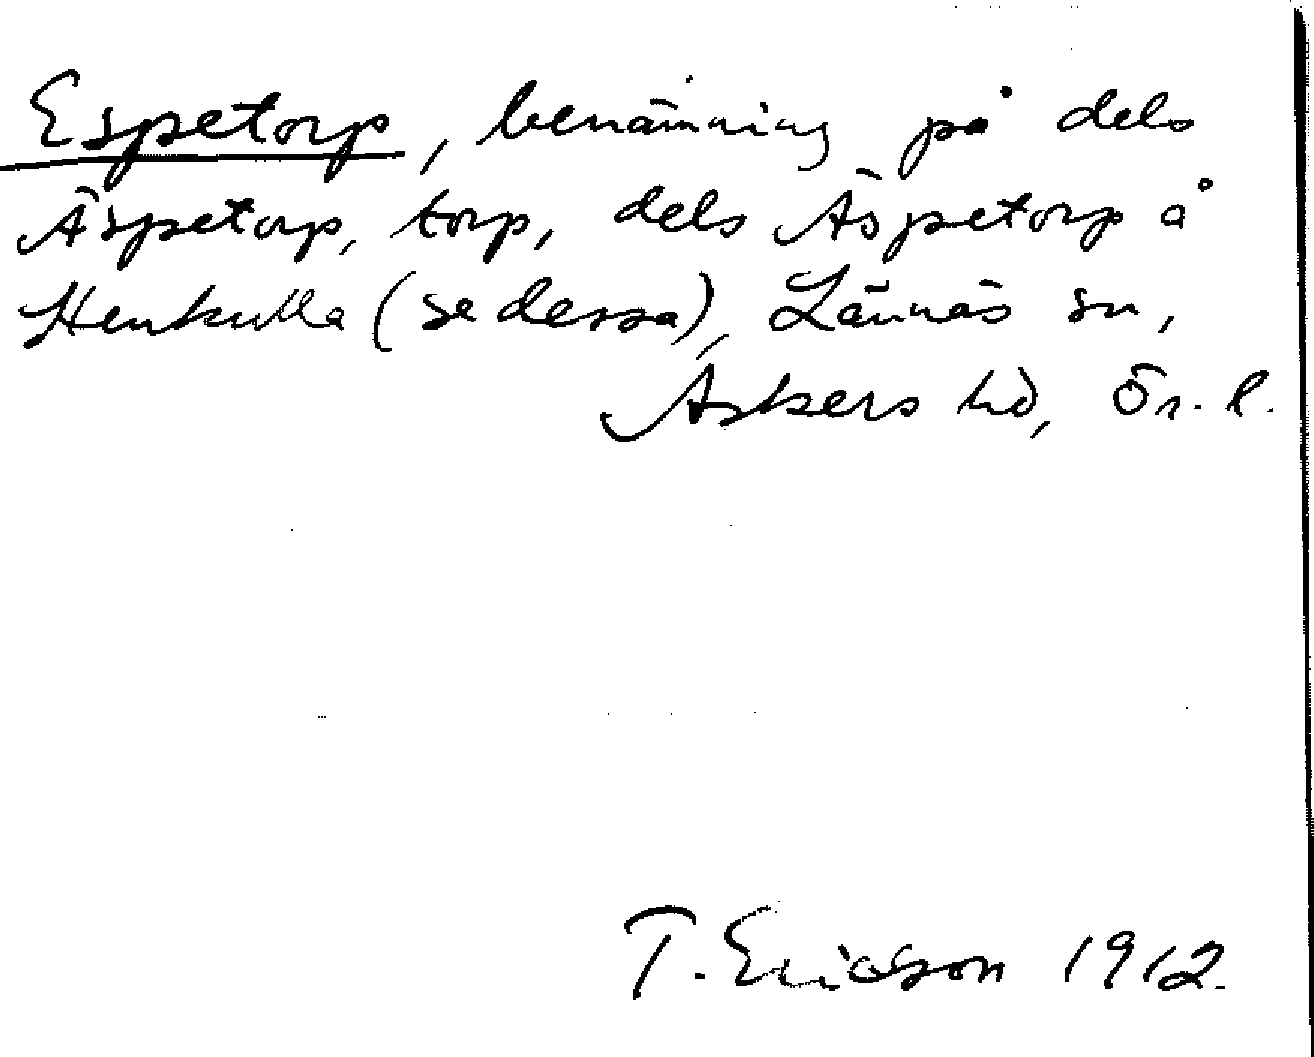 Espetorp, benämning på dels
Äspetorp, torp, dels Äspetorp å
Henkulla (se dessa), Lännäs sn,
Askers hd, Ör. l.
T. Ericsson 1912.